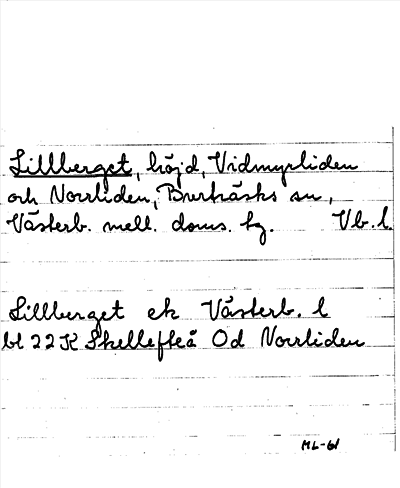 Lillberget, höjd, Vidmyrliden
och Norrliden, Burträsks sn,
Västerb. mell. doms. tg. Vb. l.
Lillberget ek Västerb. l
bl 22K Skellefteå Od Norrliden
ML-61